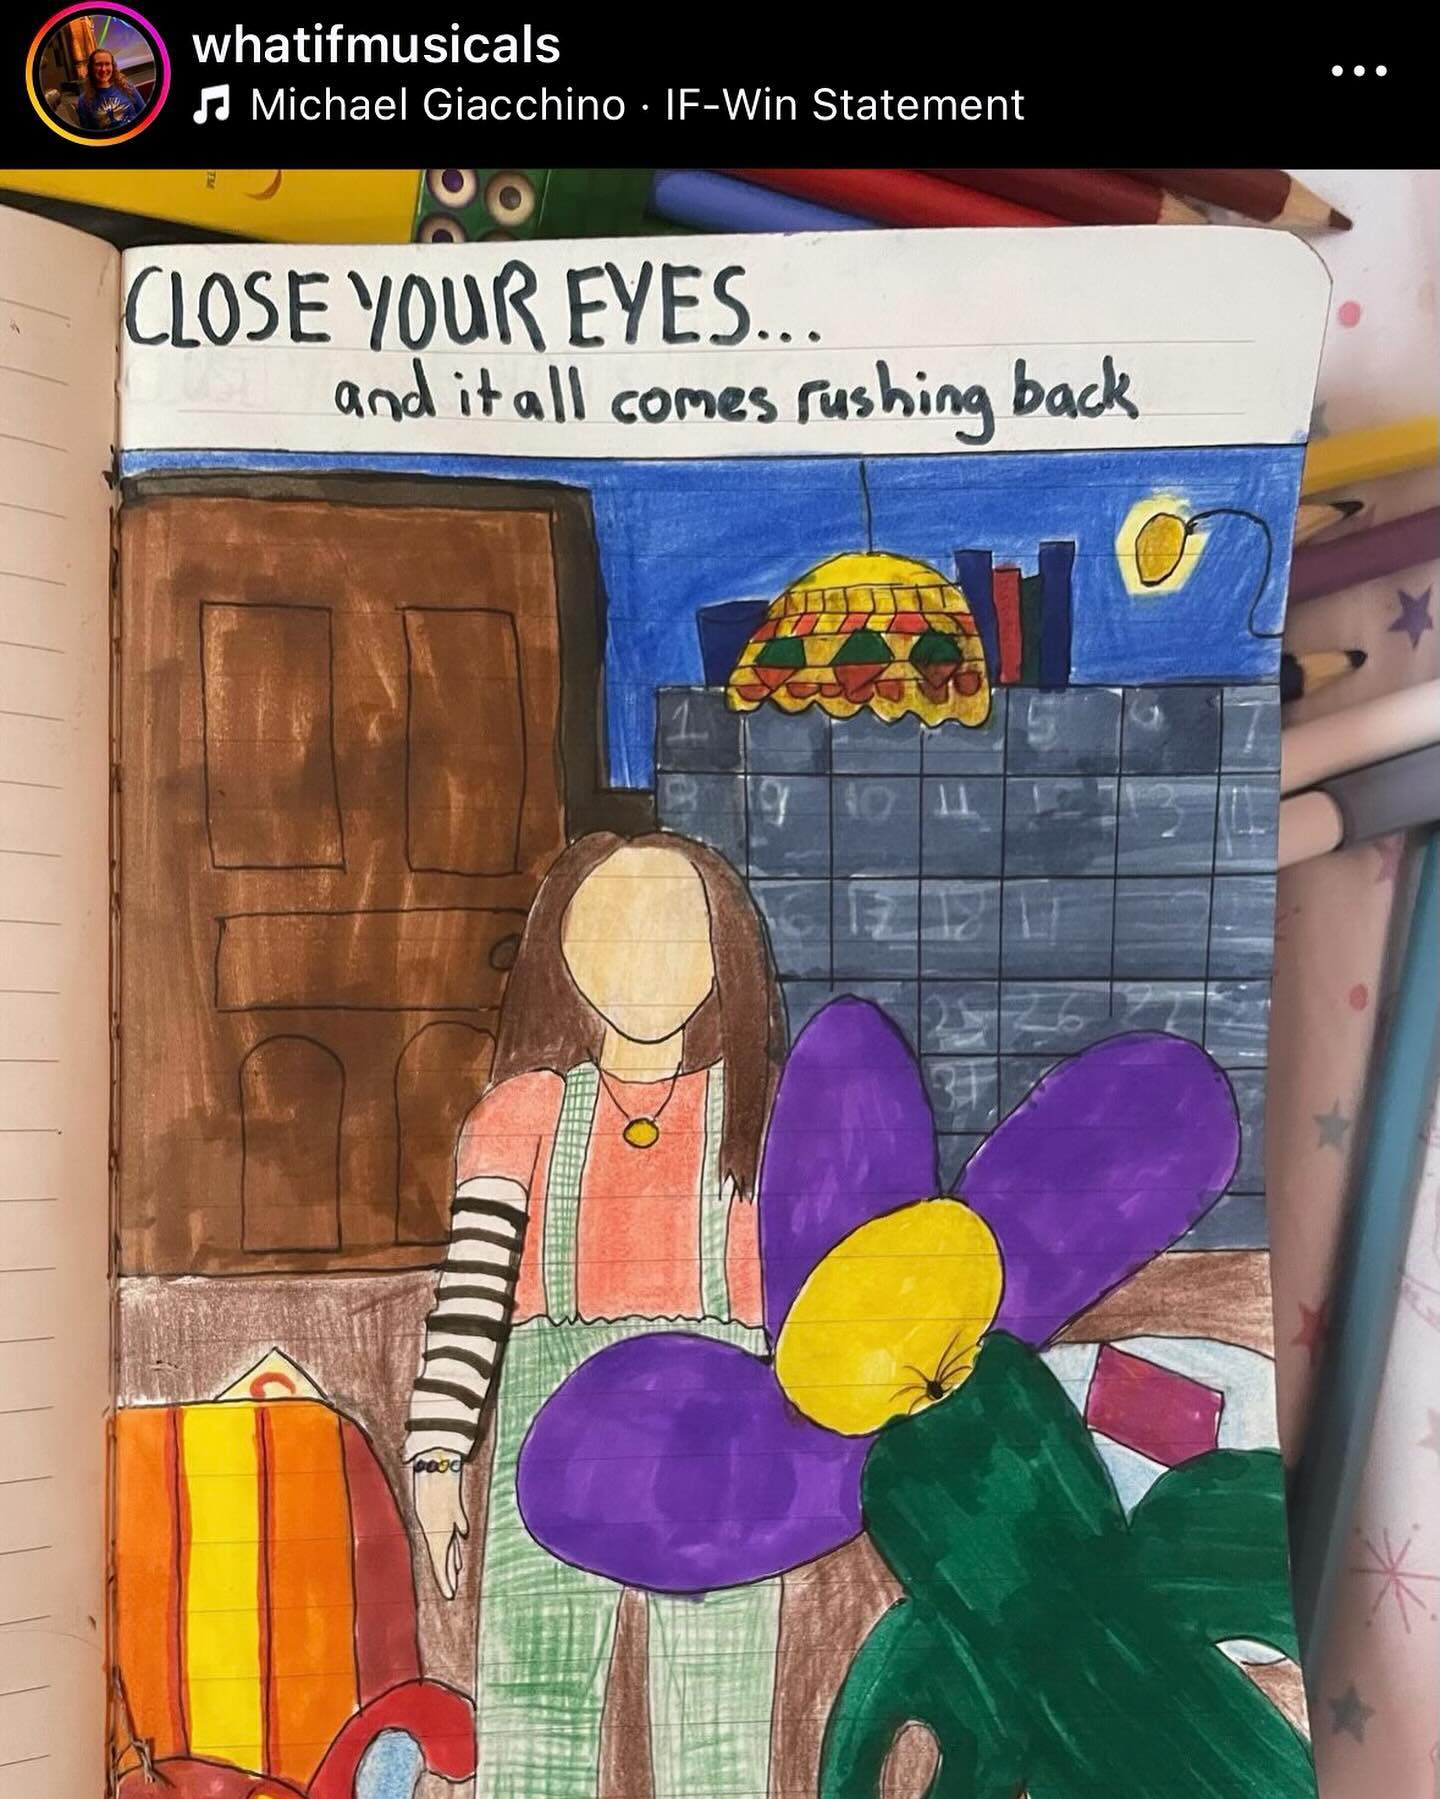 whatifmusicals
Michael Giacchino · IF-Win Statement
TM
CLOSE YOUR EYES...
and it all comes rushing back
1 5 6 7
8 9 10 11 12 13
17 18
25 26 27
31